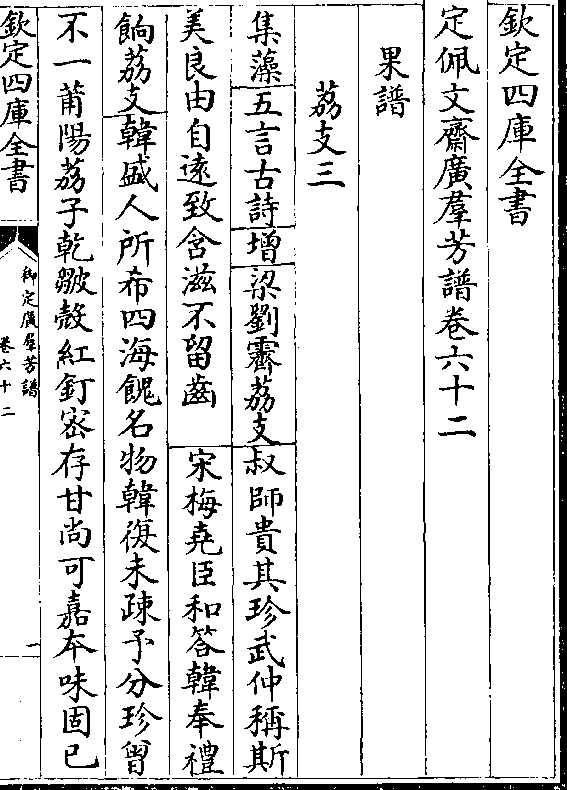 欽定四庫全書
定佩文齋廣羣芳譜卷六十二
果譜
荔支三
集藻五言古詩增梁劉霽荔支叔師貴其珍武仲稱斯
美良由自遠致含滋不留齒 宋梅堯臣和答韓奉禮
餉荔支韓盛人所希四海餽名物韓復未疎予分珍曾
不一莆陽荔子乾皺殼紅釘宻存甘尚可嘉夲味固已
欽定四庫全書
御定廣羣芳譜
卷六十二
一